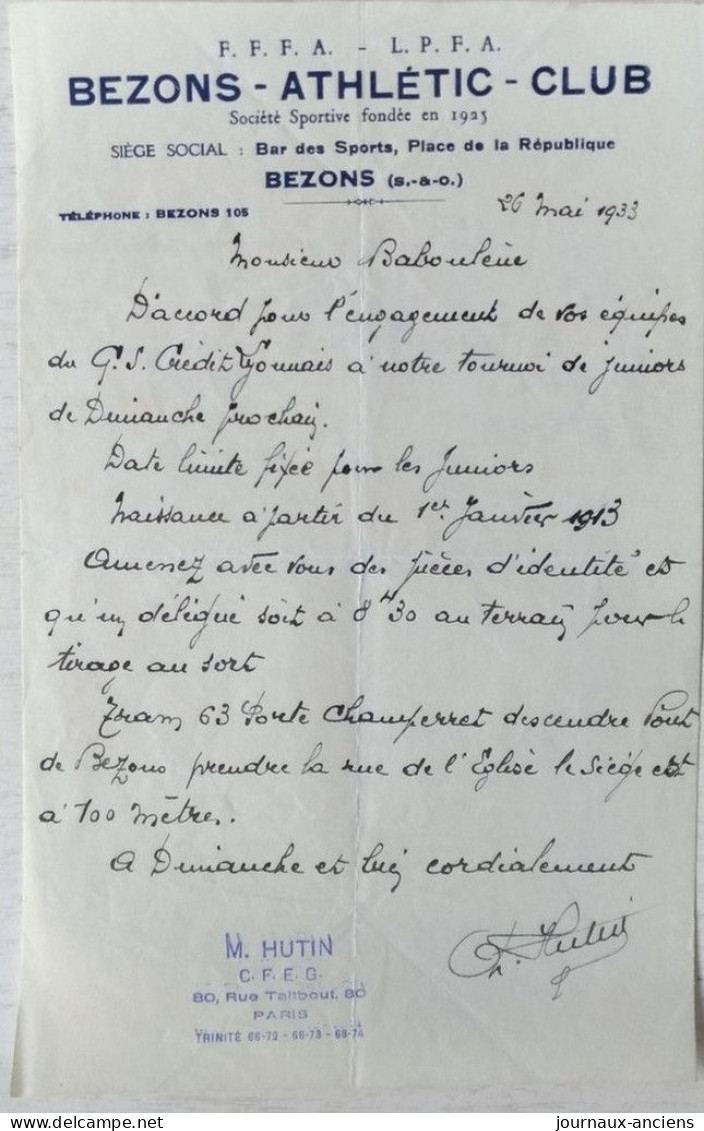 F. F. F. A. - L. P. F. A.
BEZONS - ATHLÉTIC - CLUB
Société Sportive fondée en 1925
SIÈGE SOCIAL : Bar des Sports, Place de la République
BEZONS (S.-&-O.)
TÉLÉPHONE : BEZONS 105
26 Mai 1933
Monsieur Baboulène
D'accord pour l'engagement de vos équipes
du G.S. Crédit Lyonnais à notre tournoi de juniors
de Dimanche prochain.
Date limite fixée pour les Juniors
Naissance à partir du 1er Janvier 1913
Amenez avec vous des pièces d'identité et
qu'un délégué soit à 8h30 au terrain pour le
tirage au sort
Tram 63 Porte Champerret descendre Pont
de Bezons prendre la rue de l'Eglise le Siège est
à 100 mètres.
A Dimanche et bien cordialement
Ch. Hutin
M. HUTIN
C. F. E. G.
80, Rue Taitbout, 80
PARIS
TRINITÉ 68-72 - 68-73 - 68-74
journaux-anciens
www.delcampe.net